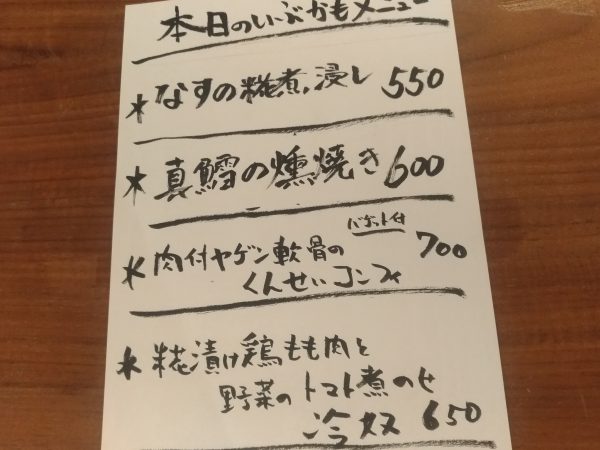 本日のいぶかもメニュー
＊なすの糀煮浸し 550
＊真鱈の燻焼き 600
バケット付
＊肉付ヤゲン軟骨の 700
くんせいコンフィ
＊糀漬け鶏もも肉と
野菜のトマト煮のせ
冷奴 650